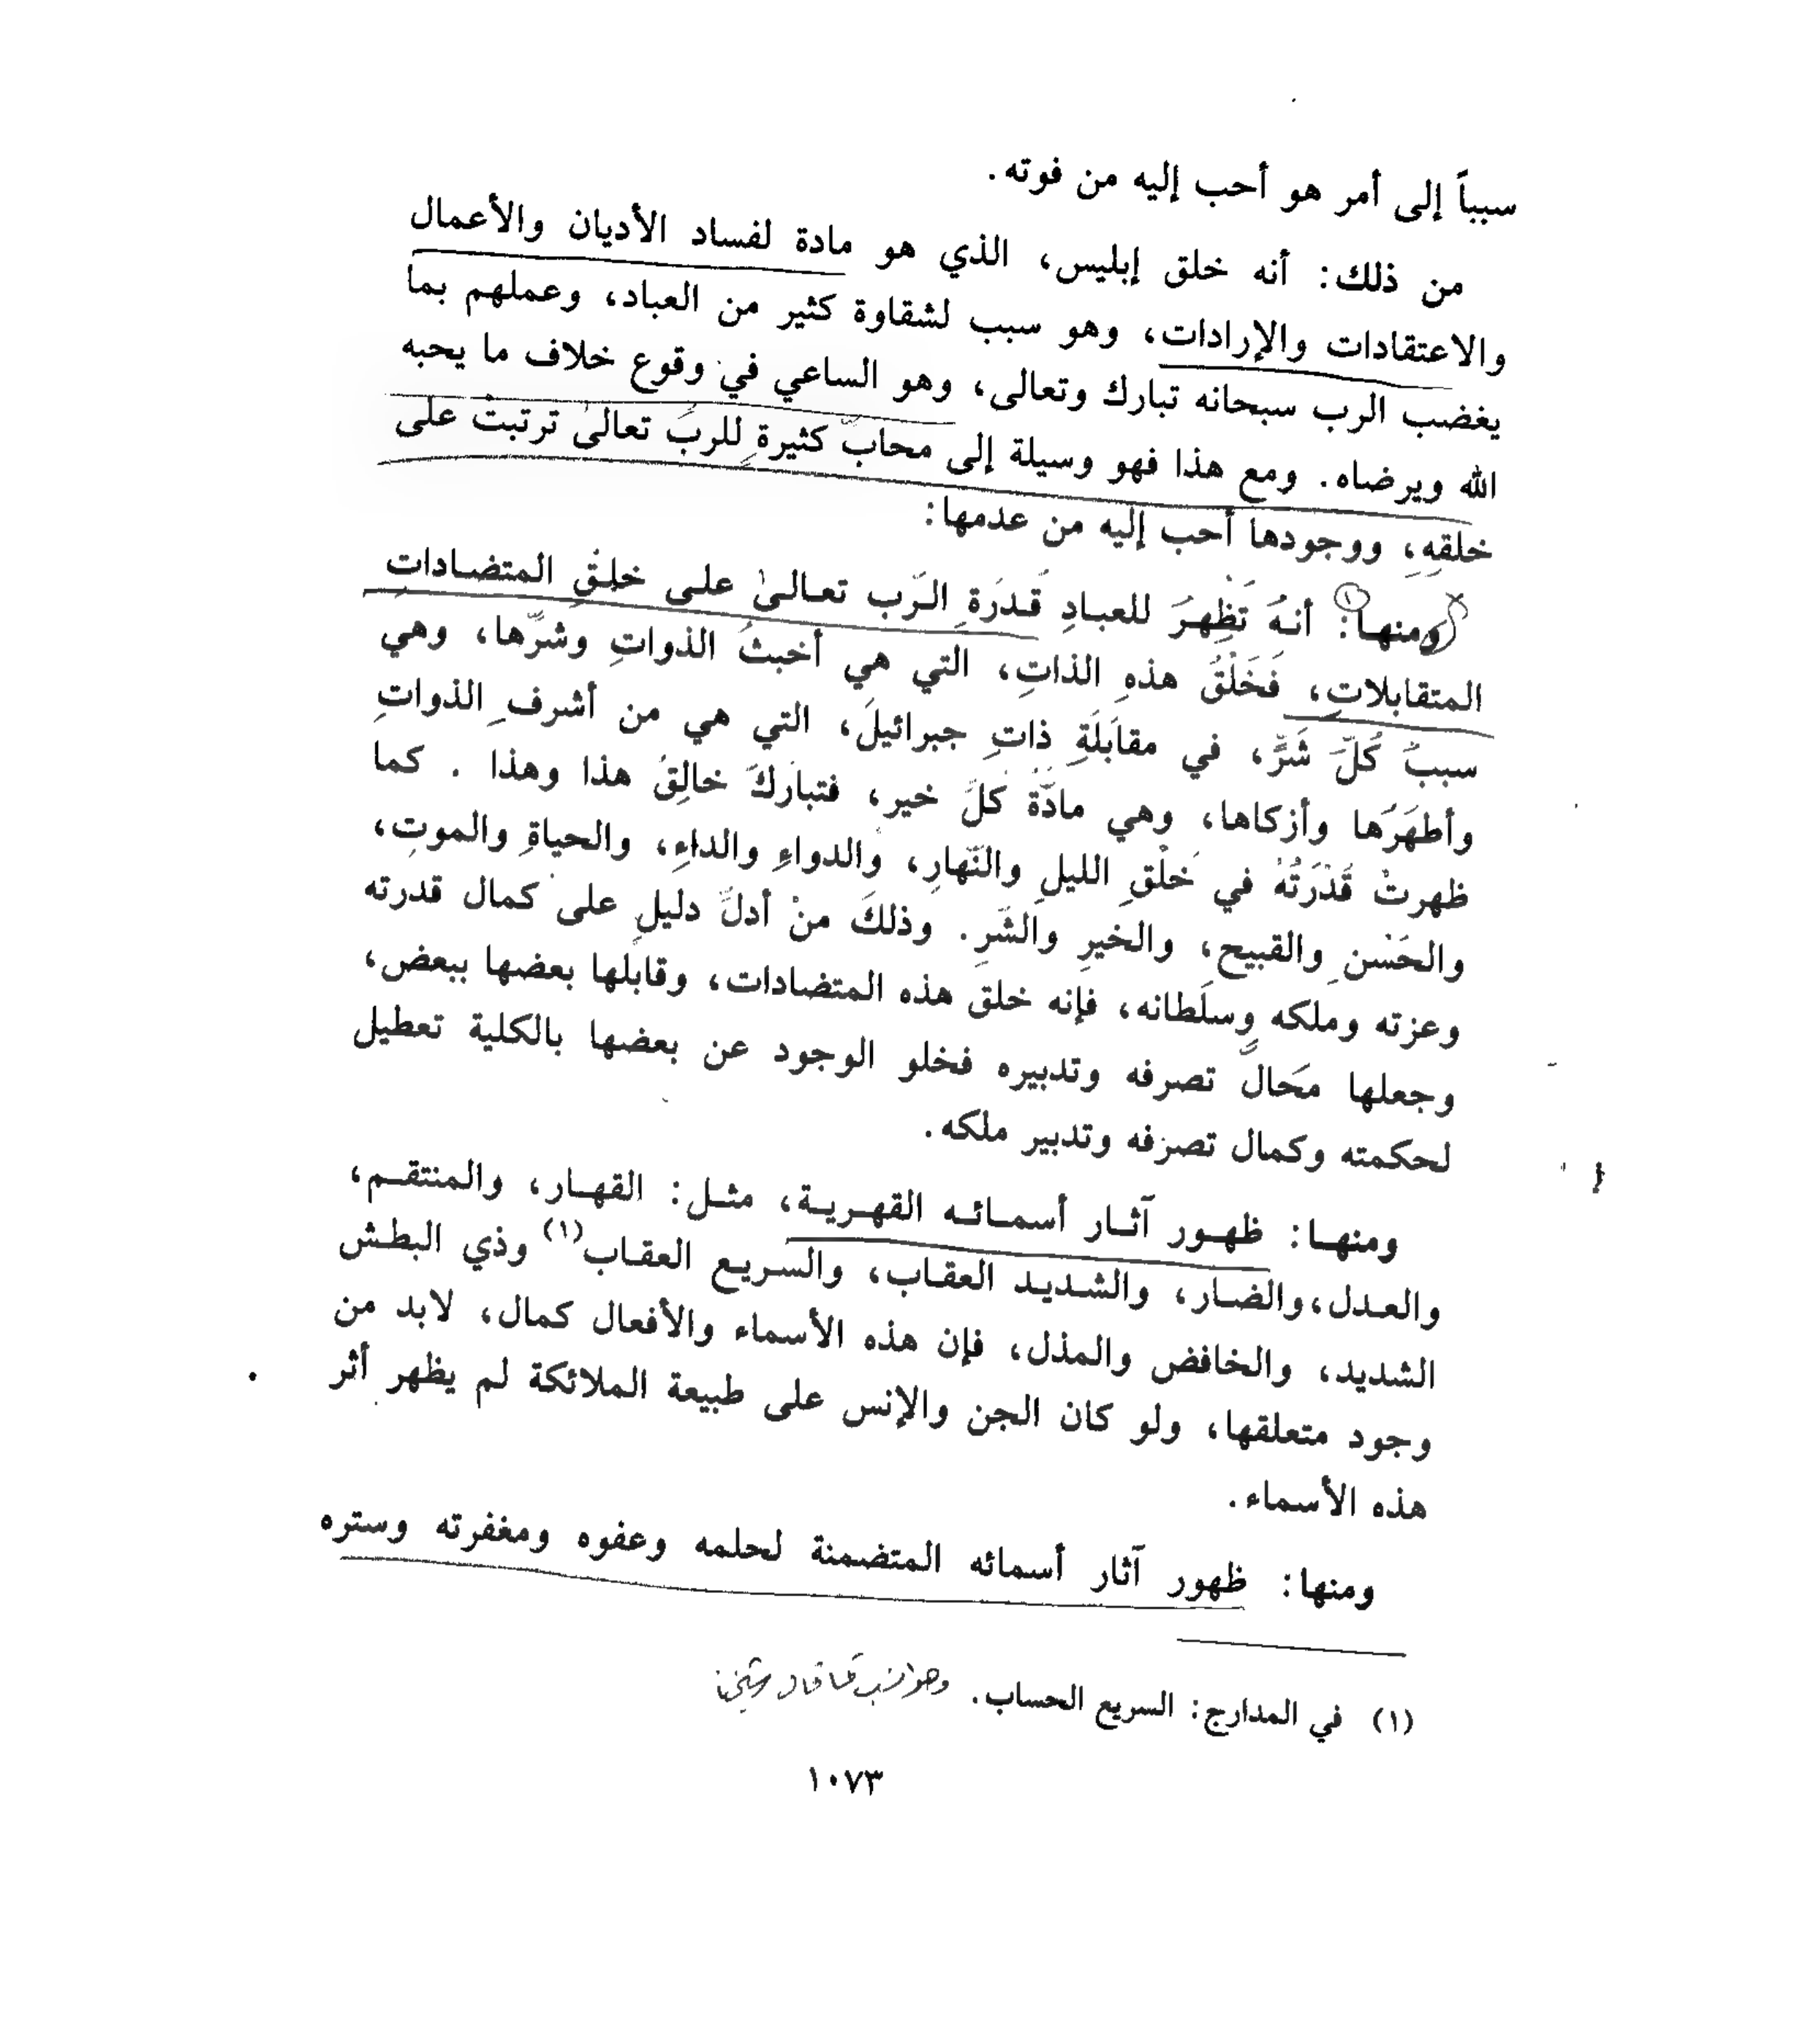 سبباً إلى أمر هو أحب إليه من فوته.
من ذلك: أنه خلق إبليس، الذي هو مادة لفساد الأديان والأعمال
والاعتقادات والإرادات، وهو سبب لشقاوة كثير من العباد، وعملهم بما
يغضب الرب سبحانه تبارك وتعالى، وهو الساعي في وقوع خلاف ما يحبه
الله ويرضاه. ومع هذا فهو وسيلة إلى محابّ كثيرةٍ للربِّ تعالىٰ ترتبتْ على
خلقِهِ، ووجودها أحب إليه من عدمها:
ومنهـا: أنـهُ تَظْهـرُ للعبـادِ قُـدرَةِ الـرَب تعـالـىٰ علـى خلـقِ المتضـاداتِ
المتقابلاتِ، فَخَلْقُ هذهِ الذاتِ، التي هي أخبثُ الذواتِ وشرُّها، وهي
سببُ كُلِّ شَرٍّ، في مقابَلَةِ ذاتِ جبرائيلَ، التي هي من أشرفِ الذواتِ
وأطهَرَها وأزكاها، وهي مادَّةُ كُلِّ خير، فتبارَكَ خالِقُ هذا وهذا . كما
ظهرتْ قُدْرَتُهُ في خَلْقِ الليلِ والنَّهارِ، والدواءِ والداءِ، والحياةِ والموتِ،
والحَسْنِ والقبيحِ، والخيرِ والشَّرِ. وذلكَ منْ أدلِّ دليلٍ على كمال قدرته
وعزته وملكه وسلَطانه، فإنه خلق هذه المتضادات، وقابلها بعضها ببعض،
وجعلها مَحَالَّ تصرفه وتدبيره فخلو الوجود عن بعضها بالكلية تعطيل
لحكمته وكمال تصرفه وتدبير ملكه.
ومنهـا: ظهـور آثـار أسمـائـه القهـريـة، مثـل: القهـار، والمنتقـم،
والعـدل، والضـار، والشـديـد العقـاب، والسـريـع العقـاب(١) وذي البطـش
الشديد، والخافض والمذل، فإن هذه الأسماء والأفعال كمال، لابد من
وجود متعلقها، ولو كان الجن والإنس على طبيعة الملائكة لم يظهر أثر
هذه الأسماء.
ومنها: ظهور آثار أسمائه المتضمنة لحلمه وعفوه ومغفرته وستره
(١) في المدارج: السريع الحساب. وهو أنسب كما قال شيخنا
١٠٧٣